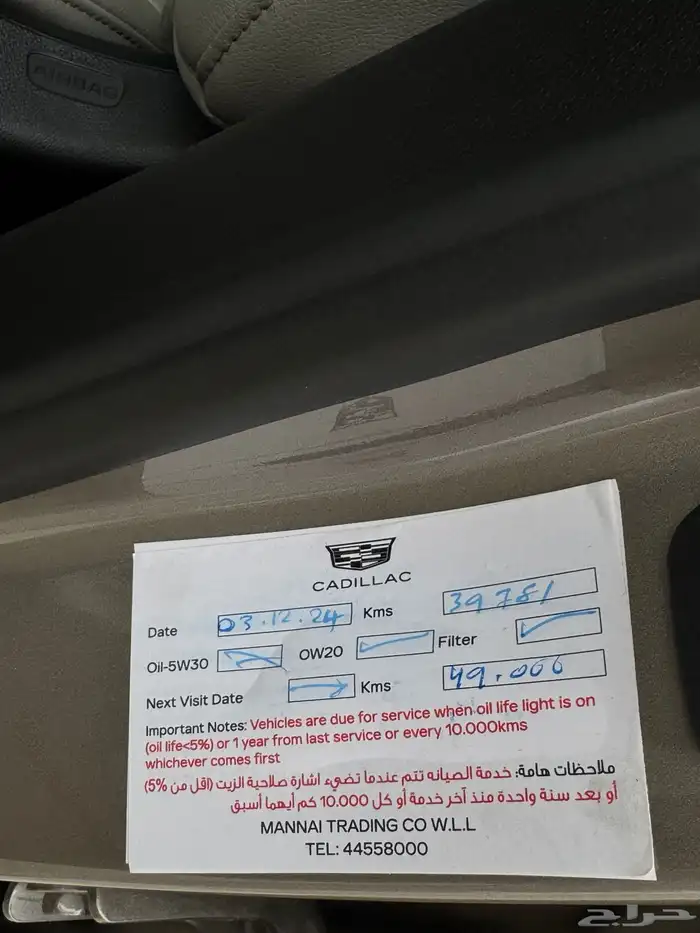 AIRBAG
CADILLAC
Date 03.12.24 Kms 39781
Oil-5W30 0W20 Filter
Next Visit Date Kms 49.000
Important Notes: Vehicles are due for service when oil life light is on
(oil life<5%) or 1 year from last service or every 10.000kms
whichever comes first
ملاحظات هامة: خدمة الصيانه تتم عندما تضيء اشارة صلاحية الزيت (اقل من 5%)
أو بعد سنة واحدة منذ آخر خدمة أو كل 10.000 كم أيهما أسبق
MANNAI TRADING CO W.L.L
TEL: 44558000
حراج